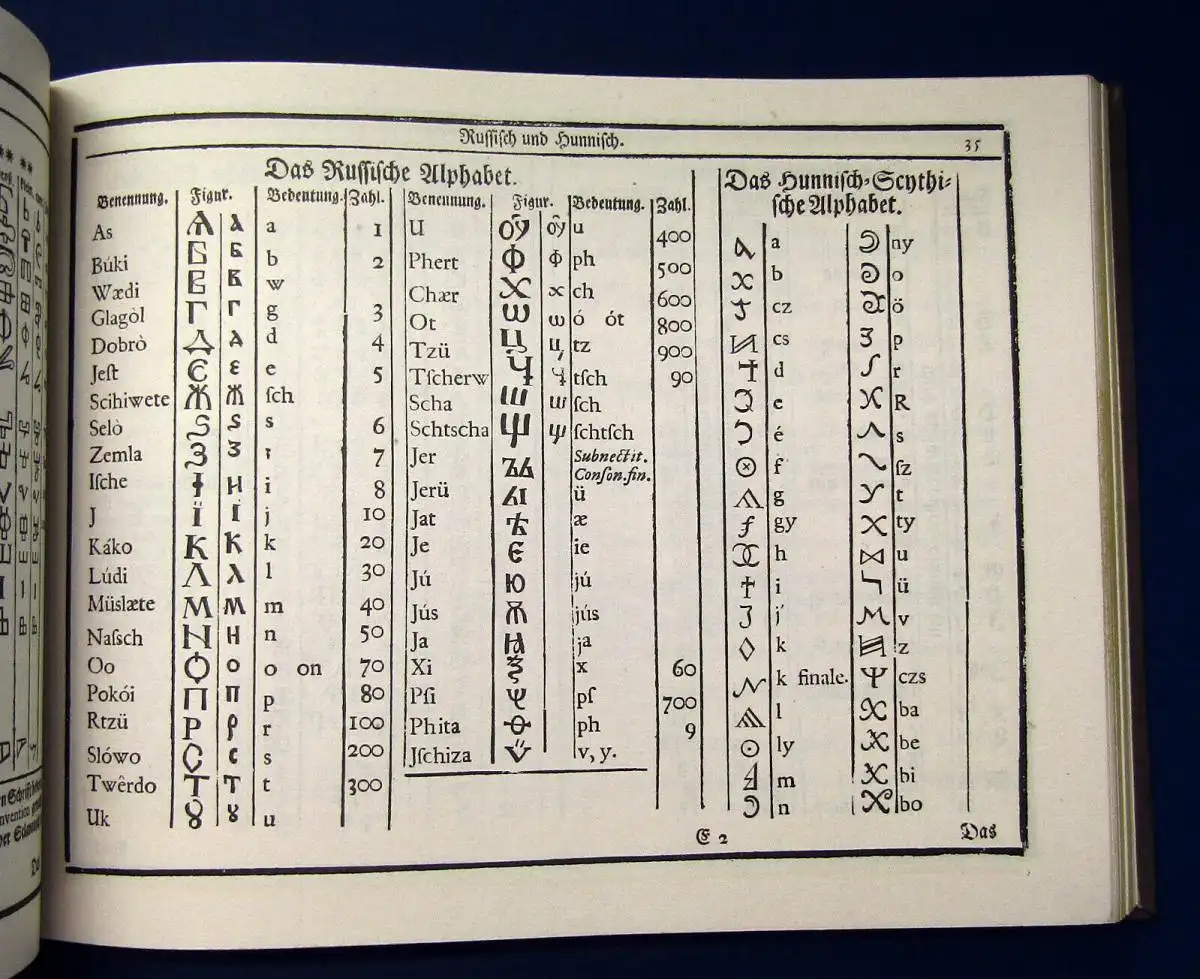 Russisch und Hunnisch.
35
Das Russische Alphabet.
Benennung. Figur. Bedeutung. Zahl.
As Ѧ ѧ a 1
Búki Б Б b 2
Wædi В В w
Glagòl Г Г g 3
Dobrò Д д d 4
Jeſt Є є e 5
Scihiwete Ж Ж ſch
Selò Ѕ Ѕ s 6
Zemla З З 7
Iſche И i 8
J Ї ї j 10
Káko К К k 20
Lúdi Л л l 30
Müslæte М м m 40
Naſsch N н n 50
Oo О о o on 70
Pokói П п p 80
Rtzü Р р r 100
Slówo С с s 200
Twêrdo Т т t 300
Uk Ȣ ȣ u
Benennung. Figur. Bedeutung. Zahl.
U ОУ оу u 400
Phert Ф ф ph 500
Chær Х х ch 600
Ot Ѡ ѡ ó ót 800
Tzü Ц ц tz 900
Tſcherw Ч ч tſch 90
Scha Ш ш ſch
Schtscha Щ щ ſchtſch
Jer ЪЬ Subnectit.
Conſon. fin.
Jerü ЫІ ü
Jat Ѣ æ
Je Є ie
Jú Ю jú
Jús Ѫ jús
Ja Ꙗ ja
Xi Ѯ x 60
Pſi Ѱ pſ 700
Phita Ѳ ph 9
Jſchiza Ѵ v, y.
Das Hunnisch-Scythi-
sche Alphabet.
a
b
cz
cs
d
e
é
f
g
gy
h
i
j
k
k finale.
l
ly
m
n
ny
o
ö
p
r
R
s
ſz
t
ty
u
ü
v
z
czs
ba
be
bi
bo
E 2
Das